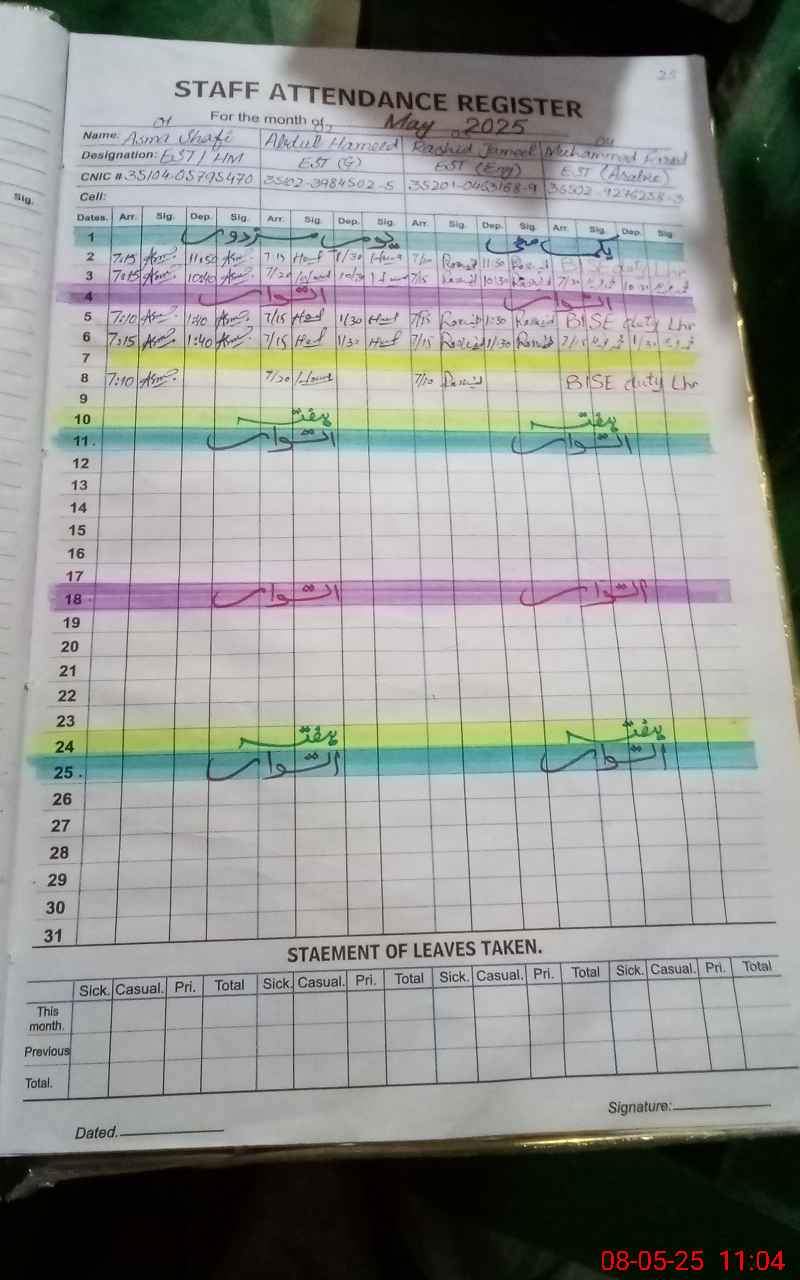 25
STAFF ATTENDANCE REGISTER
For the month of, May 2025
01 04
Name: Asma Shafi Abdul Hameed Rashid Jameel Muhammad
Designation: EST/HM EST (G) EST (Eng) EST (Arabic)
CNIC # 35104-0579547-0 35102-3984502-5 35201-0463168-9 36502-9276238-3
Cell:
Sig.
Dates. Arr. Sig. Dep. Sig. Arr. Sig. Dep. Sig. Arr Sig. Dep. Sig. Arr. Sig. Dep. Sig
1 یوم مزدور یکم مئی
2 7:15 Asm. 11:50 Asm. 7:15 1/30 7/10 11:50 BISE duty Lhr
3 7:15 Asm. 10:40 Asm. 7/20 10/30 7/15 10/30 7/20 10/30
4 اتوار اتوار
5 7:10 Asm. 1:40 Asm. 7/15 1/30 7/15 1:30 BISE duty Lhr
6 7:15 Asm. 1:40 Asm. 7/15 1/30 7/15 1/30 7/15 1/30
7
8 7:10 Asm. 7/20 7/10 BISE duty Lhr
9
10 ہفتہ ہفتہ
11 اتوار اتوار
12
13
14
15
16
17
18 اتوار اتوار
19
20
21
22
23
24 ہفتہ ہفتہ
25 اتوار اتوار
26
27
28
29
30
31
STAEMENT OF LEAVES TAKEN.
Sick. Casual. Pri. Total Sick. Casual. Pri. Total Sick. Casual. Pri. Total Sick. Casual. Pri. Total
This month.
Previous
Total.
Signature:
Dated.
08-05-25 11:04